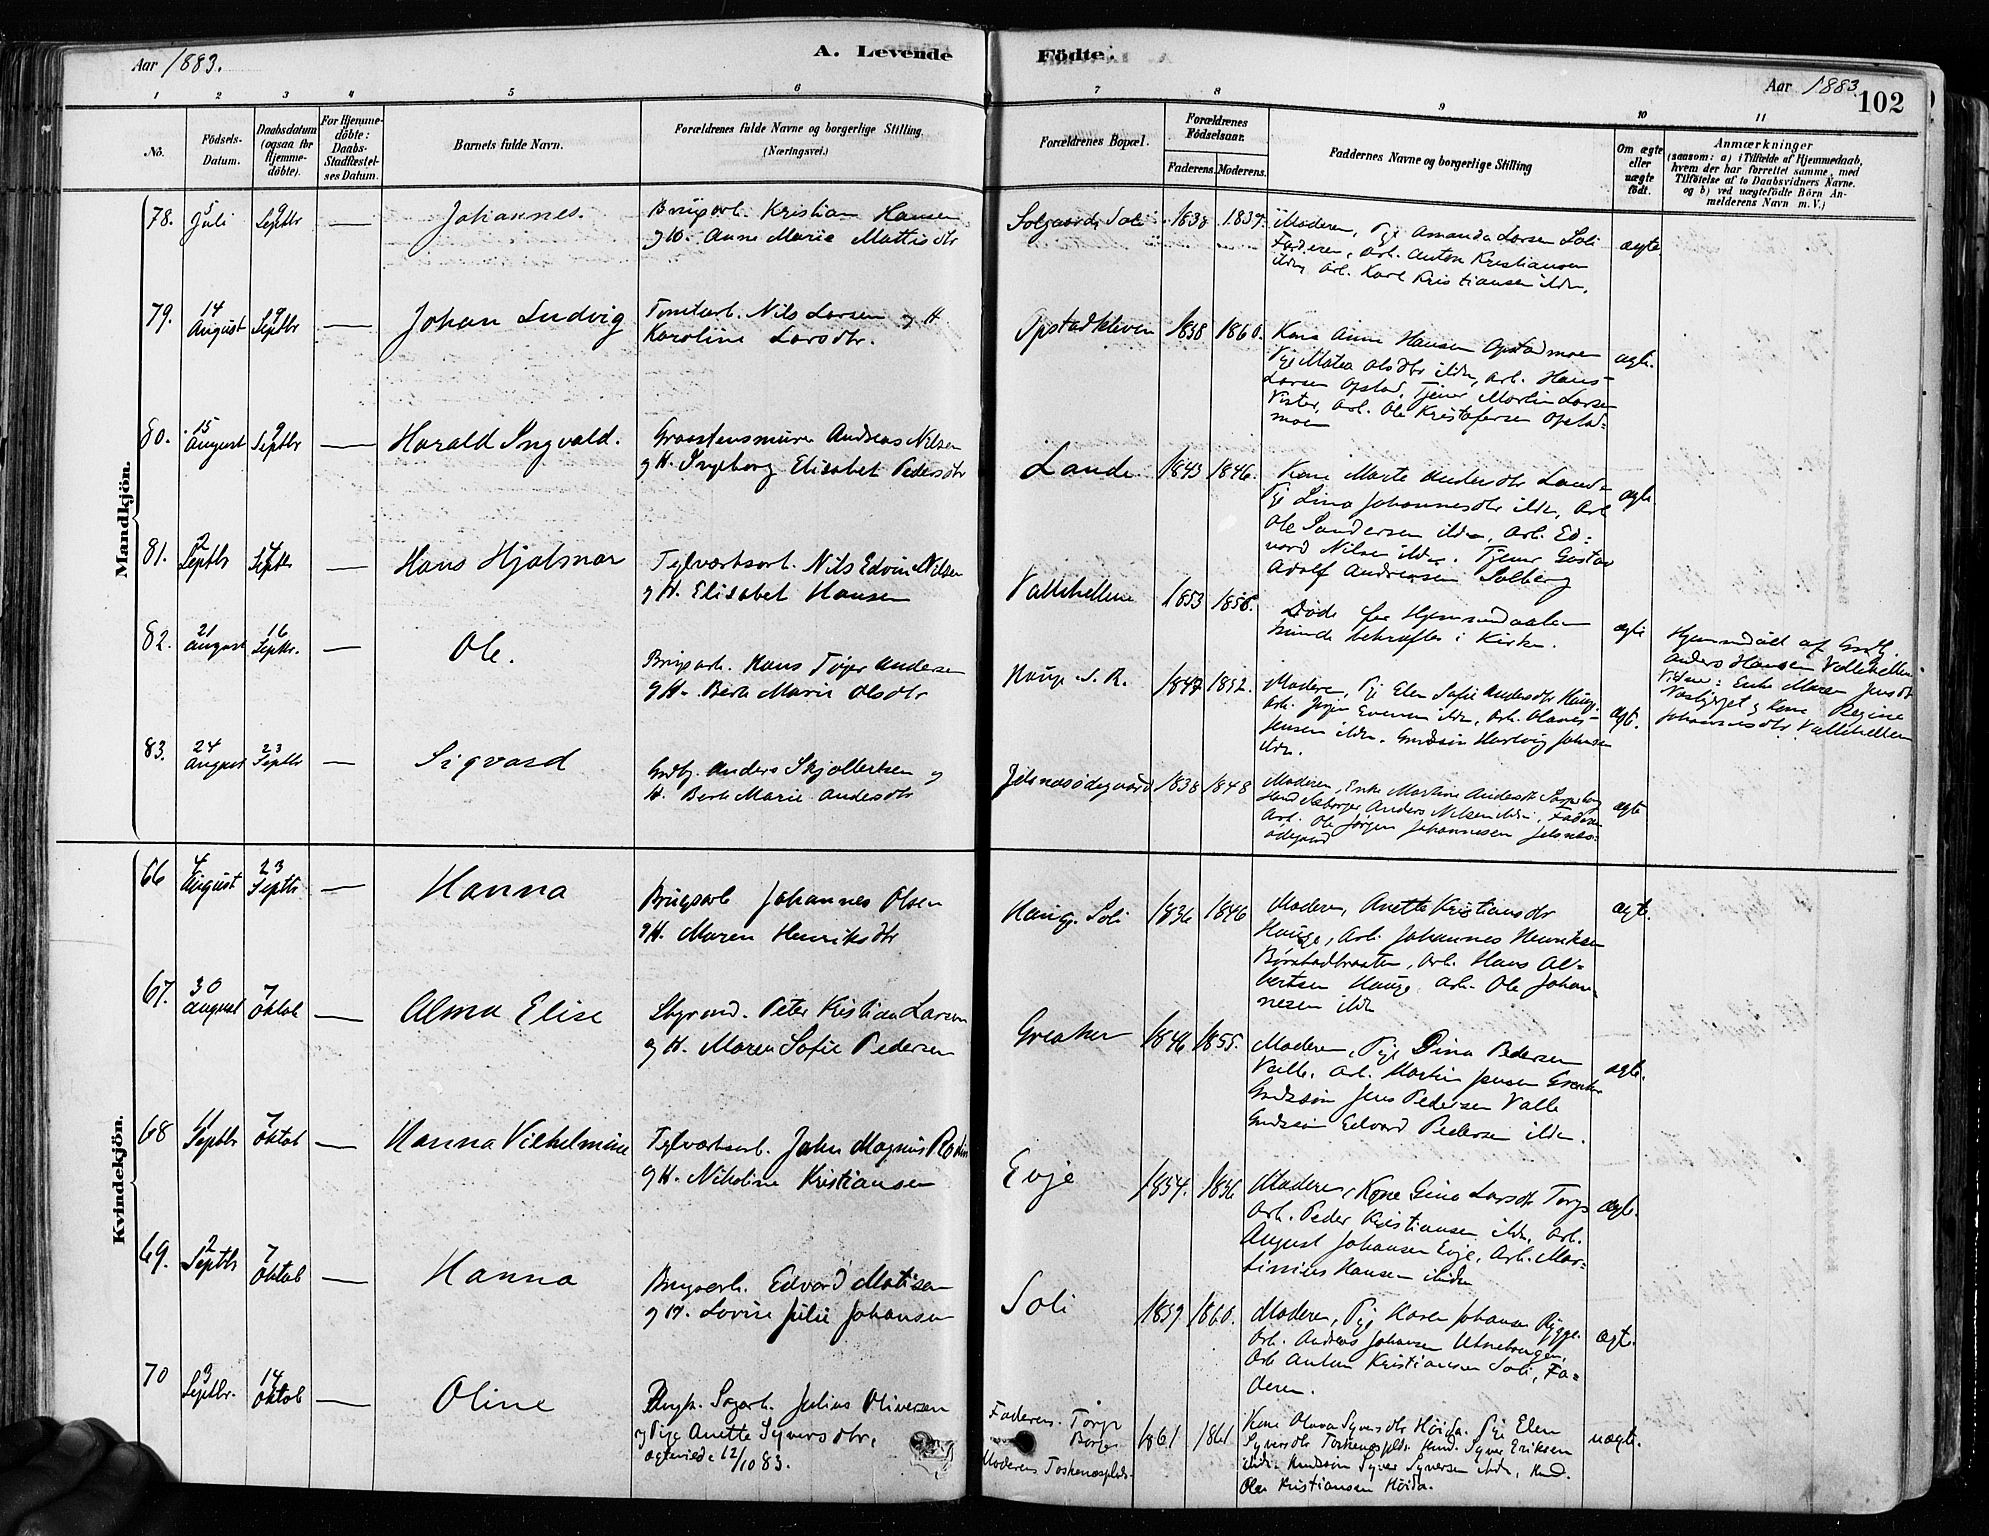 Aar 1883.
A. Levende
Födte.
Aar 1883.
102
1 2 3 4 5 6 7 8 9 10 11
No.
Födsels-Datum.
Daabsdatum (ogsaa for Hjemmedöbte).
For Hjemmedöbte: Daabs-Stadfæstelses Datum.
Barnets fulde Navn.
Forældrenes fulde Navne og borgerlige Stilling. (Næringsvei.)
Forældrenes Bopæl.
Forældrenes Födselsaar.
Faderens. Moderens.
Faddernes Navne og borgerlige Stilling
Om ægte eller uægte födt.
Anmærkninger
(saasom: a) i Tilfælde af Hjemmedaab, hvem der har forrettet samme, med Tilföielse af to Daabsvidners Navne. og b) ved uægtefödte Börn Anmelderens Navn m. V.)
Mandkjön.
78. 5 Juli 9 Septbr — Johannes.
Brugsarb. Kristian Hansen
og H. Anne Marie Mattisdtr
Solgaard, Soli 1838 1837.
Moderen, Pige Amanda Larsen Soli
Faderen, Arb. Anton Kristiansen
ildn, Arb. Karl Kristiansen ildn.
ægte.
79. 14 August 9 Septbr — Johan Ludvig
Tomtearb. Nils Larsen og H
Karoline Larsdtr.
Opstadkleven 1838 1860.
Kone Anne Hansen Opstadmoen
Pige Matea Olsdtr ildn, Arb. Hans
Larsen Opstad, Tjener Martin Larsen
Vister, Arb. Ole Kristofersen Opstad=
moen
ægte.
80. 15 August 9 Septbr — Harald Ingvald.
Graastensmurer Andreas Nilsen
og H. Ingeborg Elisabet Pedersdtr
Lande 1843 1846.
Kone Marte Andersdtr Lande
Pige Lina Johannesdtr ildn, Arb
Ole Sandersen ildn, Arb. Ed=
vard Nilsen ildn. Tjener Gustav
Adolf Andreasen Solberg
ægte
81. 2 Septbr Septbr — Hans Hjalmar
Teglværksarb. Nils Edvin Nilsen
og H. Elisabet Hansen
Vallehellene 1853 1856.
Døde før Hjemmedaaben
kunde bekræftes i Kirken.
ægte
Hjemmedöbt af Grdb.
Anders Hansen Vallehellene
Vidne: Enke Maren Jensdtr
og Kone Regine
Johannesdtr Vallehellene
82. 21 August 16 Septbr. — Ole.
Brugsarb. Hans Töger Andersen
og H. Berte Marie Olsdtr
Hauge S. R. 1847 1852.
Moderen, Pige Elen Sofie Andersdtr Hauge.
Arb. Jörgen Evensen ildn, Arb. Olaves
Jensen ildn. Grdsön Hartvig Johnsen
ildn.
ægte.
83. 24 August 23 Septbr — Sigvard
Grdbr. Anders Skjollertsen og
H. Berte Marie Andersdtr
Jelsnæsödegaard 1838 1848
Moderen, Enke Martine Andersdtr Sarpsborg
Handelsborger Anders Nilsen ildn, Faderen
Arb. Ole Jörgen Johannesen Jelsnæs-
ödegaard
ægte
Kvindekjön.
66 4 August 23 Septbr — Hanna
Brugsarb Johannes Olsen
og H. Maren Henriksdtr
Hauge, Soli 1836 1846
Moderen, Anette Kristiansdtr
Hauge, Arb. Johannes Henriksen
Börstadbraaten, Arb. Hans Al=
bertsen Hauge, Arb. Ole Johan=
nesen ildn
ægte.
67. 30 August 7 Oktob — Alma Elise
Styrmd. Peter Kristian Larsen
og H. Maren Sofie Pedersen
Greaker 1846 1855.
Moderen, Pige Dina Pedersen
Valle. Arb. Martin Jensen Greaker
Grdsön Jens Pedersen Valle
Grdsön Edvard Pedersen ildn.
ægte.
68 1 Septbr 7 Oktob — Hanna Vilhelmine
Teglværksarb. John Magnus Rodin
og H. Nikoline Kristiansen
Evje 1854. 1856
Moderen, Kone Gina Larsdtr Torp
Arb. Peder Kristiansen ildn, Arb.
August Johansen Evje, Arb. Mar=
tinius Hansen ildn
ægte.
69. 2 Septbr 7 Oktob — Hanna
Brugsarb. Edvard Matisen
og H. Lovise Julie Johansen
Soli 1859 1860.
Moderen, Pige Karen Johansen Rygge.
Arb. Andreas Johansen Utnebongen,
Arb Anton Kristiansen Soli, Fa=
deren.
ægte.
70 3 Septbr. 14 Oktob — Oline
Ungk. Sagarb. Julius Oliversen
og Pige Anette Syversdtr,
ægteviede 12/10 83.
Faderens. Torp
Borge
Moderens Toskenæsplads.
1861 1861
Kone Olava Syversdtr Höida. Pige Elen
Syversdtr Toskenæspld. Hmd. Syver Eriksen
ildn Hmdssön Syver Syversen ildn, Hmd.
Ole Kristiansen Höida.
uægte.